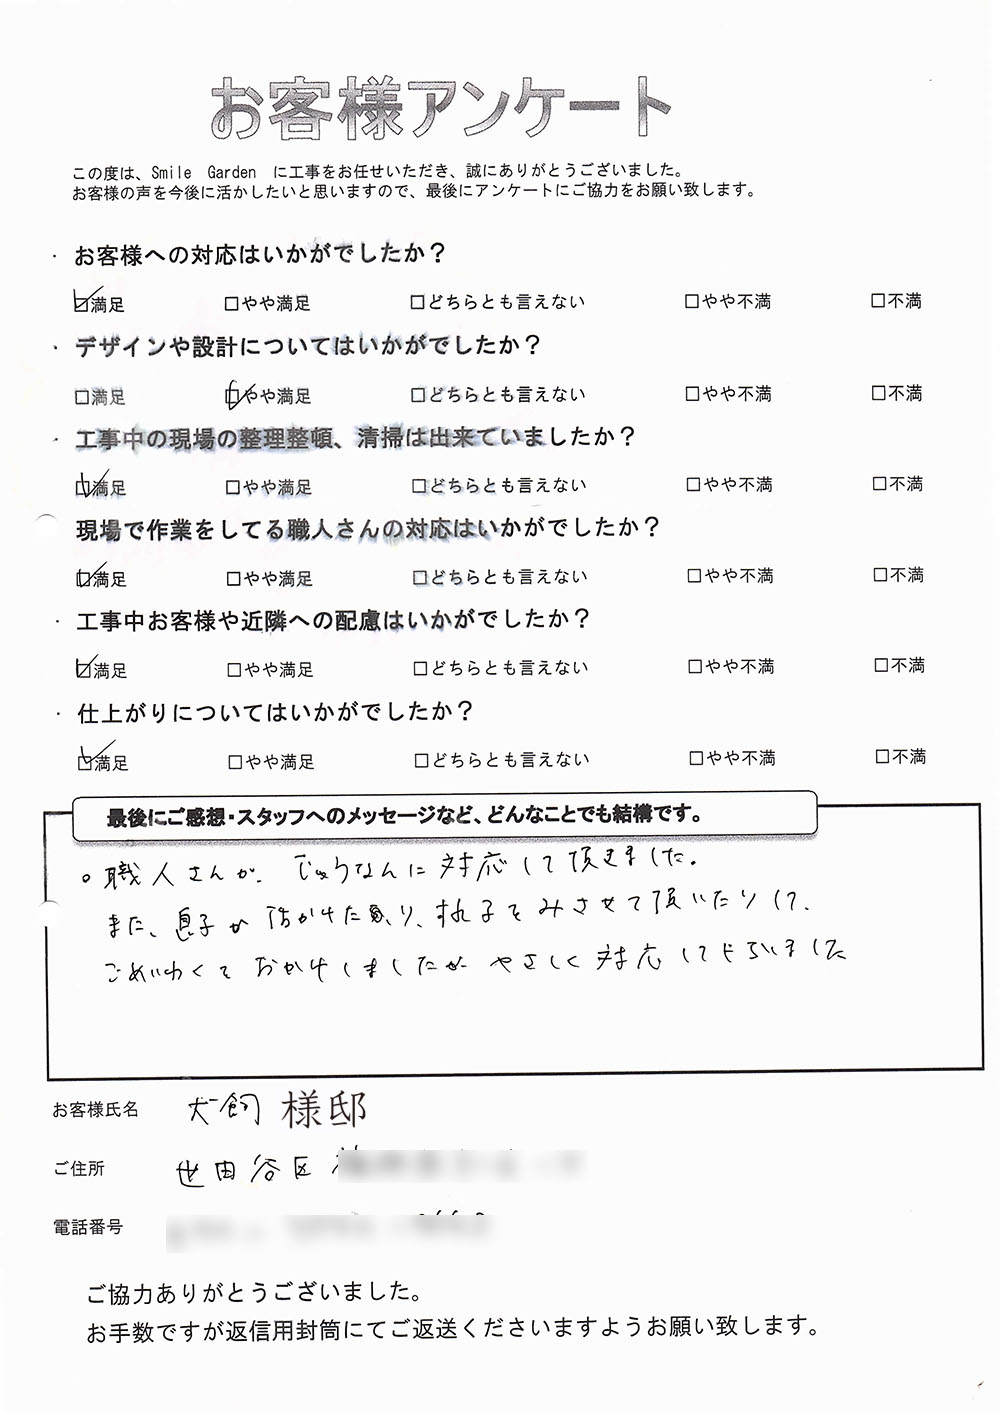 お客様アンケート
この度は、Smile Garden に工事をお任せいただき、誠にありがとうございました。
お客様の声を今後に活かしたいと思いますので、最後にアンケートにご協力をお願い致します。
・ お客様への対応はいかがでしたか？
☑満足 □やや満足 □どちらとも言えない □やや不満 □不満
・ デザインや設計についてはいかがでしたか？
□満足 ☑やや満足 □どちらとも言えない □やや不満 □不満
・ 工事中の現場の整理整頓、清掃は出来ていましたか？
☑満足 □やや満足 □どちらとも言えない □やや不満 □不満
現場で作業をしてる職人さんの対応はいかがでしたか？
☑満足 □やや満足 □どちらとも言えない □やや不満 □不満
・ 工事中お客様や近隣への配慮はいかがでしたか？
☑満足 □やや満足 □どちらとも言えない □やや不満 □不満
・ 仕上がりについてはいかがでしたか？
☑満足 □やや満足 □どちらとも言えない □やや不満 □不満
最後にご感想・スタッフへのメッセージなど、どんなことでも結構です。
。職人さんが、じゅうなんに対応して頂きました。
また、息子が 子をみさせて頂いたりして、
ごめいわくをおかけしましたが やさしく対応してもらいました
お客様氏名 犬飼 様邸
ご住所 世田谷区
電話番号
ご協力ありがとうございました。
お手数ですが返信用封筒にてご返送くださいますようお願い致します。